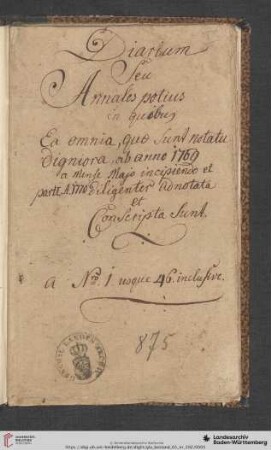 Diarium
Seu
Annales potius
in quibus
Ea omnia, quæ Sunt notatu
digniora, ab anno 1769
a Mense Majo incipiendo et
parte A. 1770 diligenter adnotata
et
Conscripta Sunt.
a Nro. 1 usque 46. inclusive.
875
Landesarchiv
Baden-Württemberg